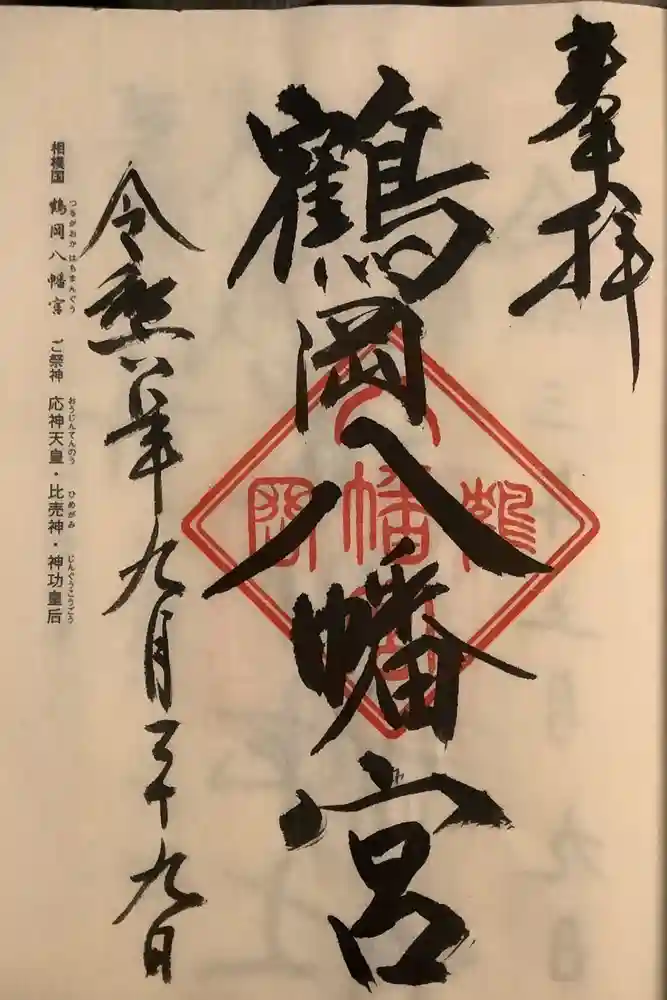 奉拝
鶴岡八幡宮
八幡宮
鶴
岡
令和六年九月二十九日
つるがおか はちまんぐう おうじんてんのう ひめがみ じんぐうこうごう
相模国 鶴岡八幡宮 ご祭神 応神天皇・比売神・神功皇后